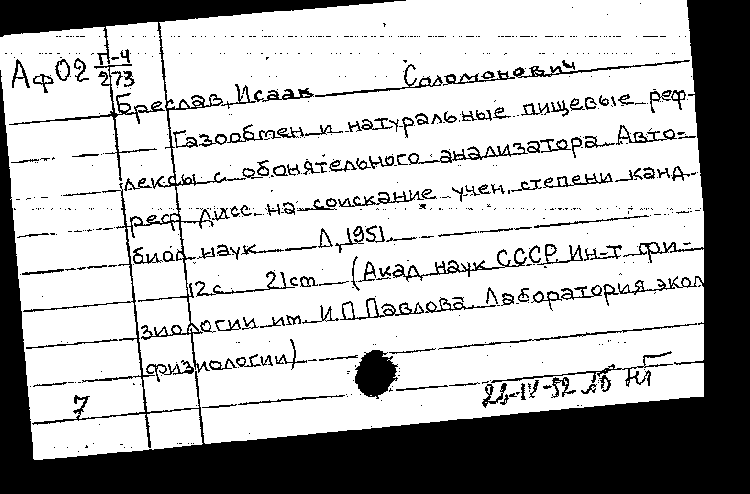 Аф02 П-4
273
Бреслав, Исаак Саломонович
Газообмен и натуральные пищевые реф-
лексы с обонятельного анализатора. Авто-
реф. дисс. на соискание учен. степени канд.
биол. наук Л, 1951.
12 с. 21 cm (Акад. наук СССР Ин-т фи-
зиологии им. И.П. Павлова. Лаборатория экол
физиологии)
7